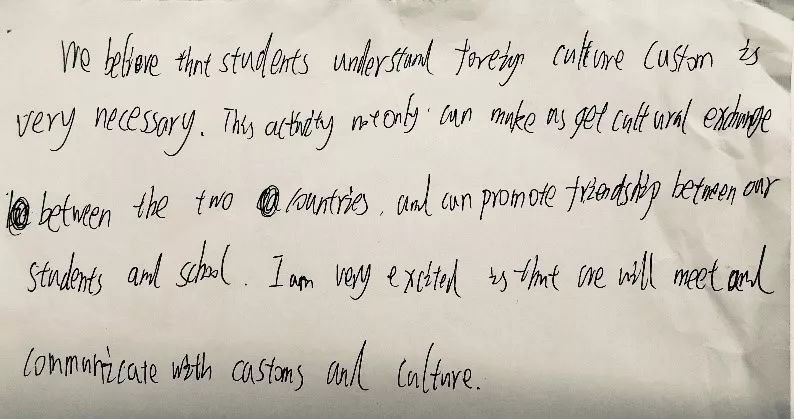 We believe that students understand foreign culture custom is
very necessary. This activity not only can make us get cultural exchange
between the two countries, and can promote friendship between our
students and school. I am very excited is that we will meet and
communicate with customs and culture.